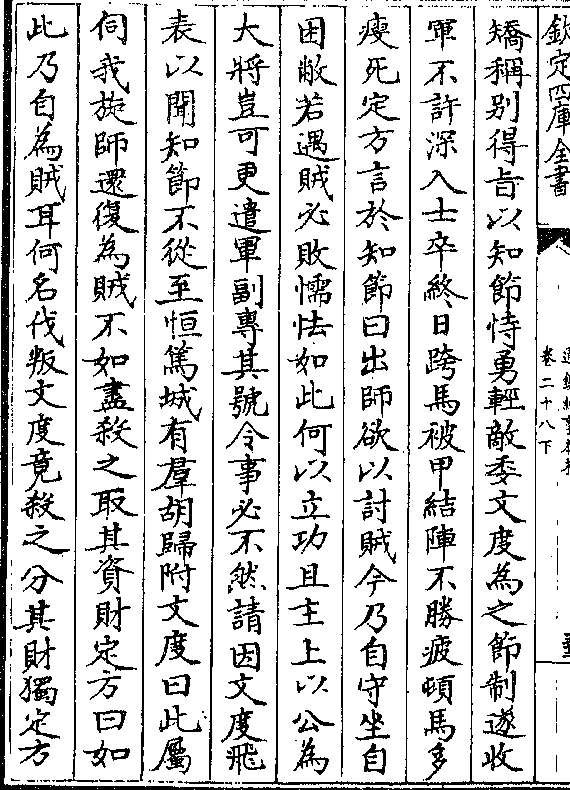 欽定四庫全書
卷二十八下
矯稱别得旨以知節恃勇輕敵委文度為之節制遂收
軍不許深入士卒終日跨馬被甲結陣不勝疲頓馬多
瘦死定方言於知節曰出師欲以討賊今乃自守坐自
困敝若遇賊必敗懦怯如此何以立功且主上以公為
大將豈可更遣軍副專其號令事必不然請囚文度飛
表以聞知節不從至恒篤城有羣胡歸附文度曰此屬
伺我旋師還復為賊不如盡殺之取其資財定方曰如
此乃自為賊耳何名伐叛文度竟殺之分其財獨定方